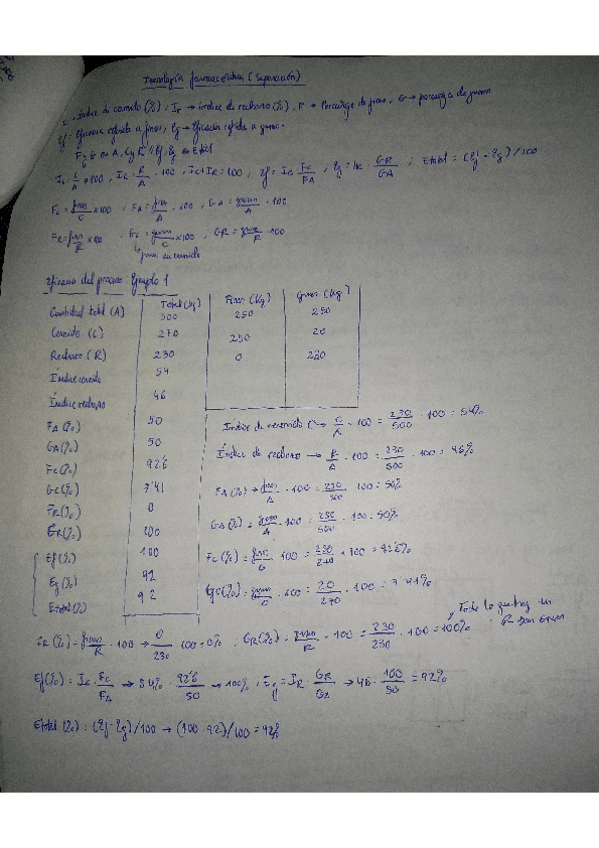 Tecnología farmacéutica (Separación)
Índice de cernido (%), Ir → índice de rechazo (%), F → Porcentaje de finos, G → porcentaje de gruesos
Ef = Eficacia referida a finos, Eg → Eficacia referida a gruesos.
F y G en A, C y R / Ef, Eg en Etotal
Ic = C/A × 100, IR = R/A · 100, Ic + IR = 100, Ef = Ic · Fc/FA ; Eg = IR · GR/GA ; Etotal = (Ef · Eg) / 100
Fc = finos/C × 100 , FA = finos/A · 100, GA = gruesos/A · 100
FR = finos/R × 100 Gc = gruesos/C × 100 , GR = gruesos/R · 100
en cernido
Eficacia del proceso Ejemplo 1
Total (Kg) Finos (Kg) Gruesos (Kg)
Cantidad total (A) 500 250 250
Cernido (C) 270 250 20
Rechazo (R) 230 0 230
Índice cernido 54
Índice rechazo 46
FA (%) 50
GA (%) 50
Fc (%) 92'6
Gc (%) 7'41
FR (%) 0
GR (%) 100
Ef (%) 100
Eg (%) 92
Etotal (%) 92
Índice de cernido C → C/A · 100 = 230/500 · 100 = 54%
Índice de rechazo → R/A · 100 = 230/500 · 100 = 46%
FA (%) → finos/A · 100 = 230/500 · 100 = 50%
GA (%) = gruesos/A · 100 = 230/500 · 100 = 50%
Fc (%) = finos/C · 100 = 230/270 · 100 = 92'6%
Gc (%) = gruesos/C · 100 = 20/270 · 100 = 7'41%
Todo lo que hay en R son gruesos
FR (%) = finos/R · 100 → 0/230 · 100 = 0% , GR (%) = gruesos/R · 100 = 230/230 · 100 = 100%
Ef (%) = Ic · Fc/FA → 54% · 92'6/50 → 100% ; Eg = IR · GR/GA → 46 · 100/50 = 92%
Etotal (%) = (Ef · Eg) / 100 → (100 · 92) / 100 = 92%